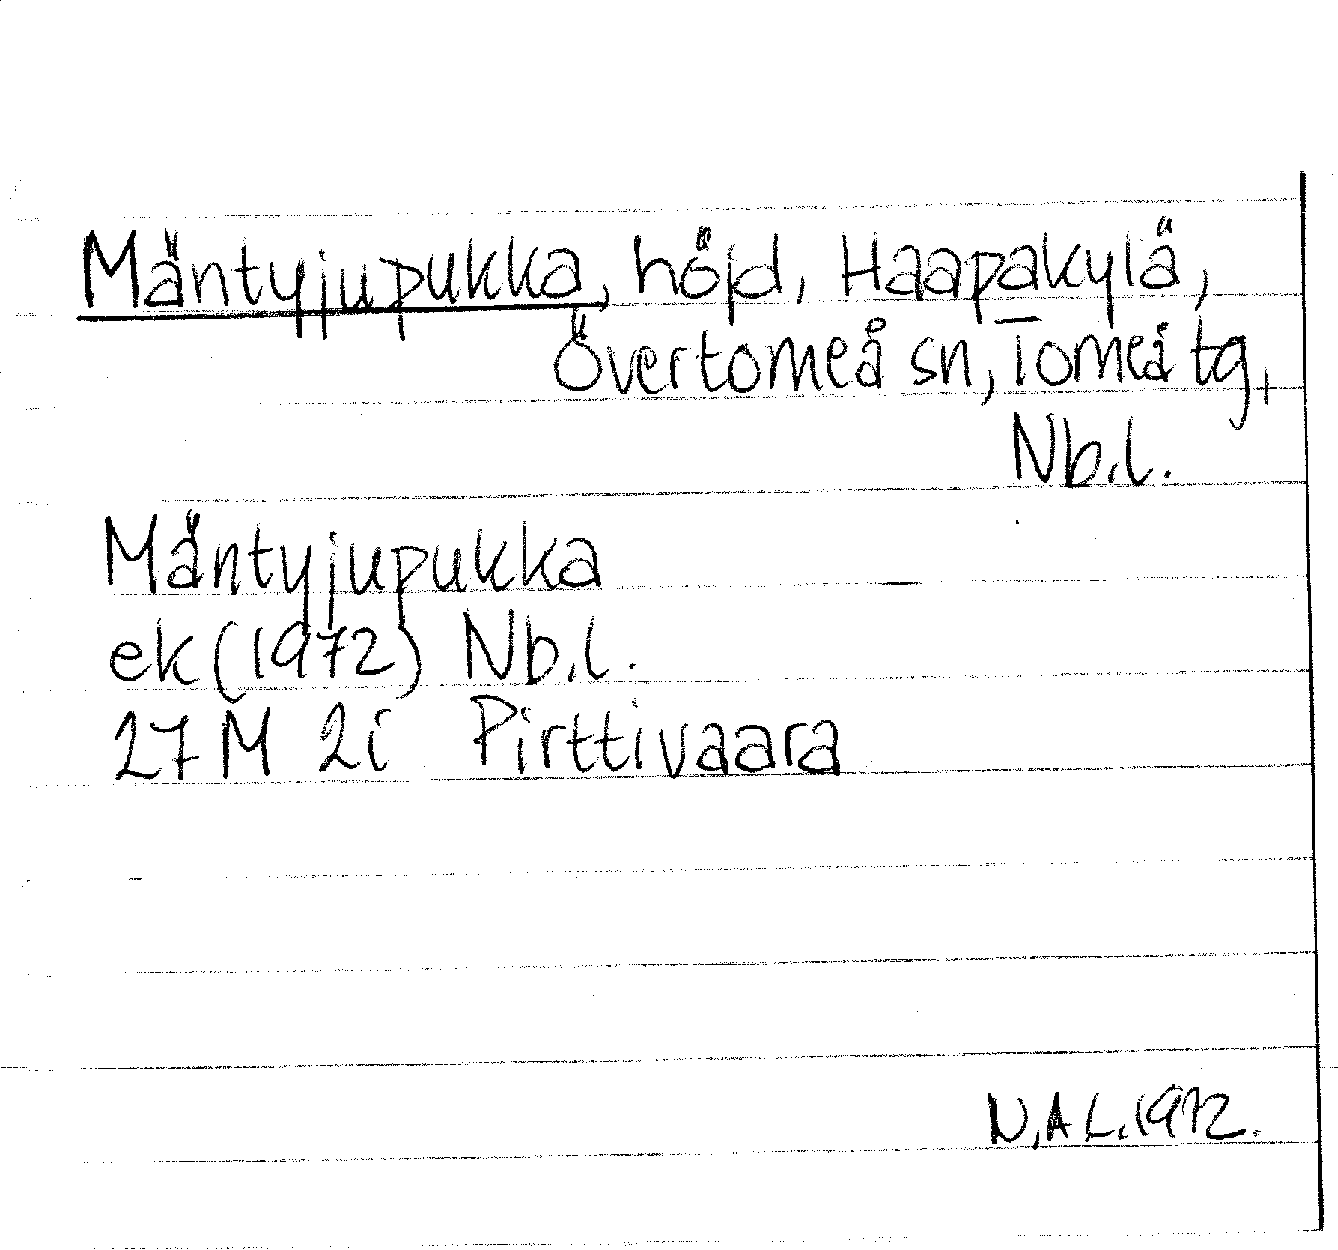 Mäntyjupukka, höjd, Haapakylä,
Övertorneå sn, Torneå tg,
Nb.l.
Mäntyjupukka
ek (1972) Nb.l.
27 M 2i Pirttivaara
N.A L. 1972.